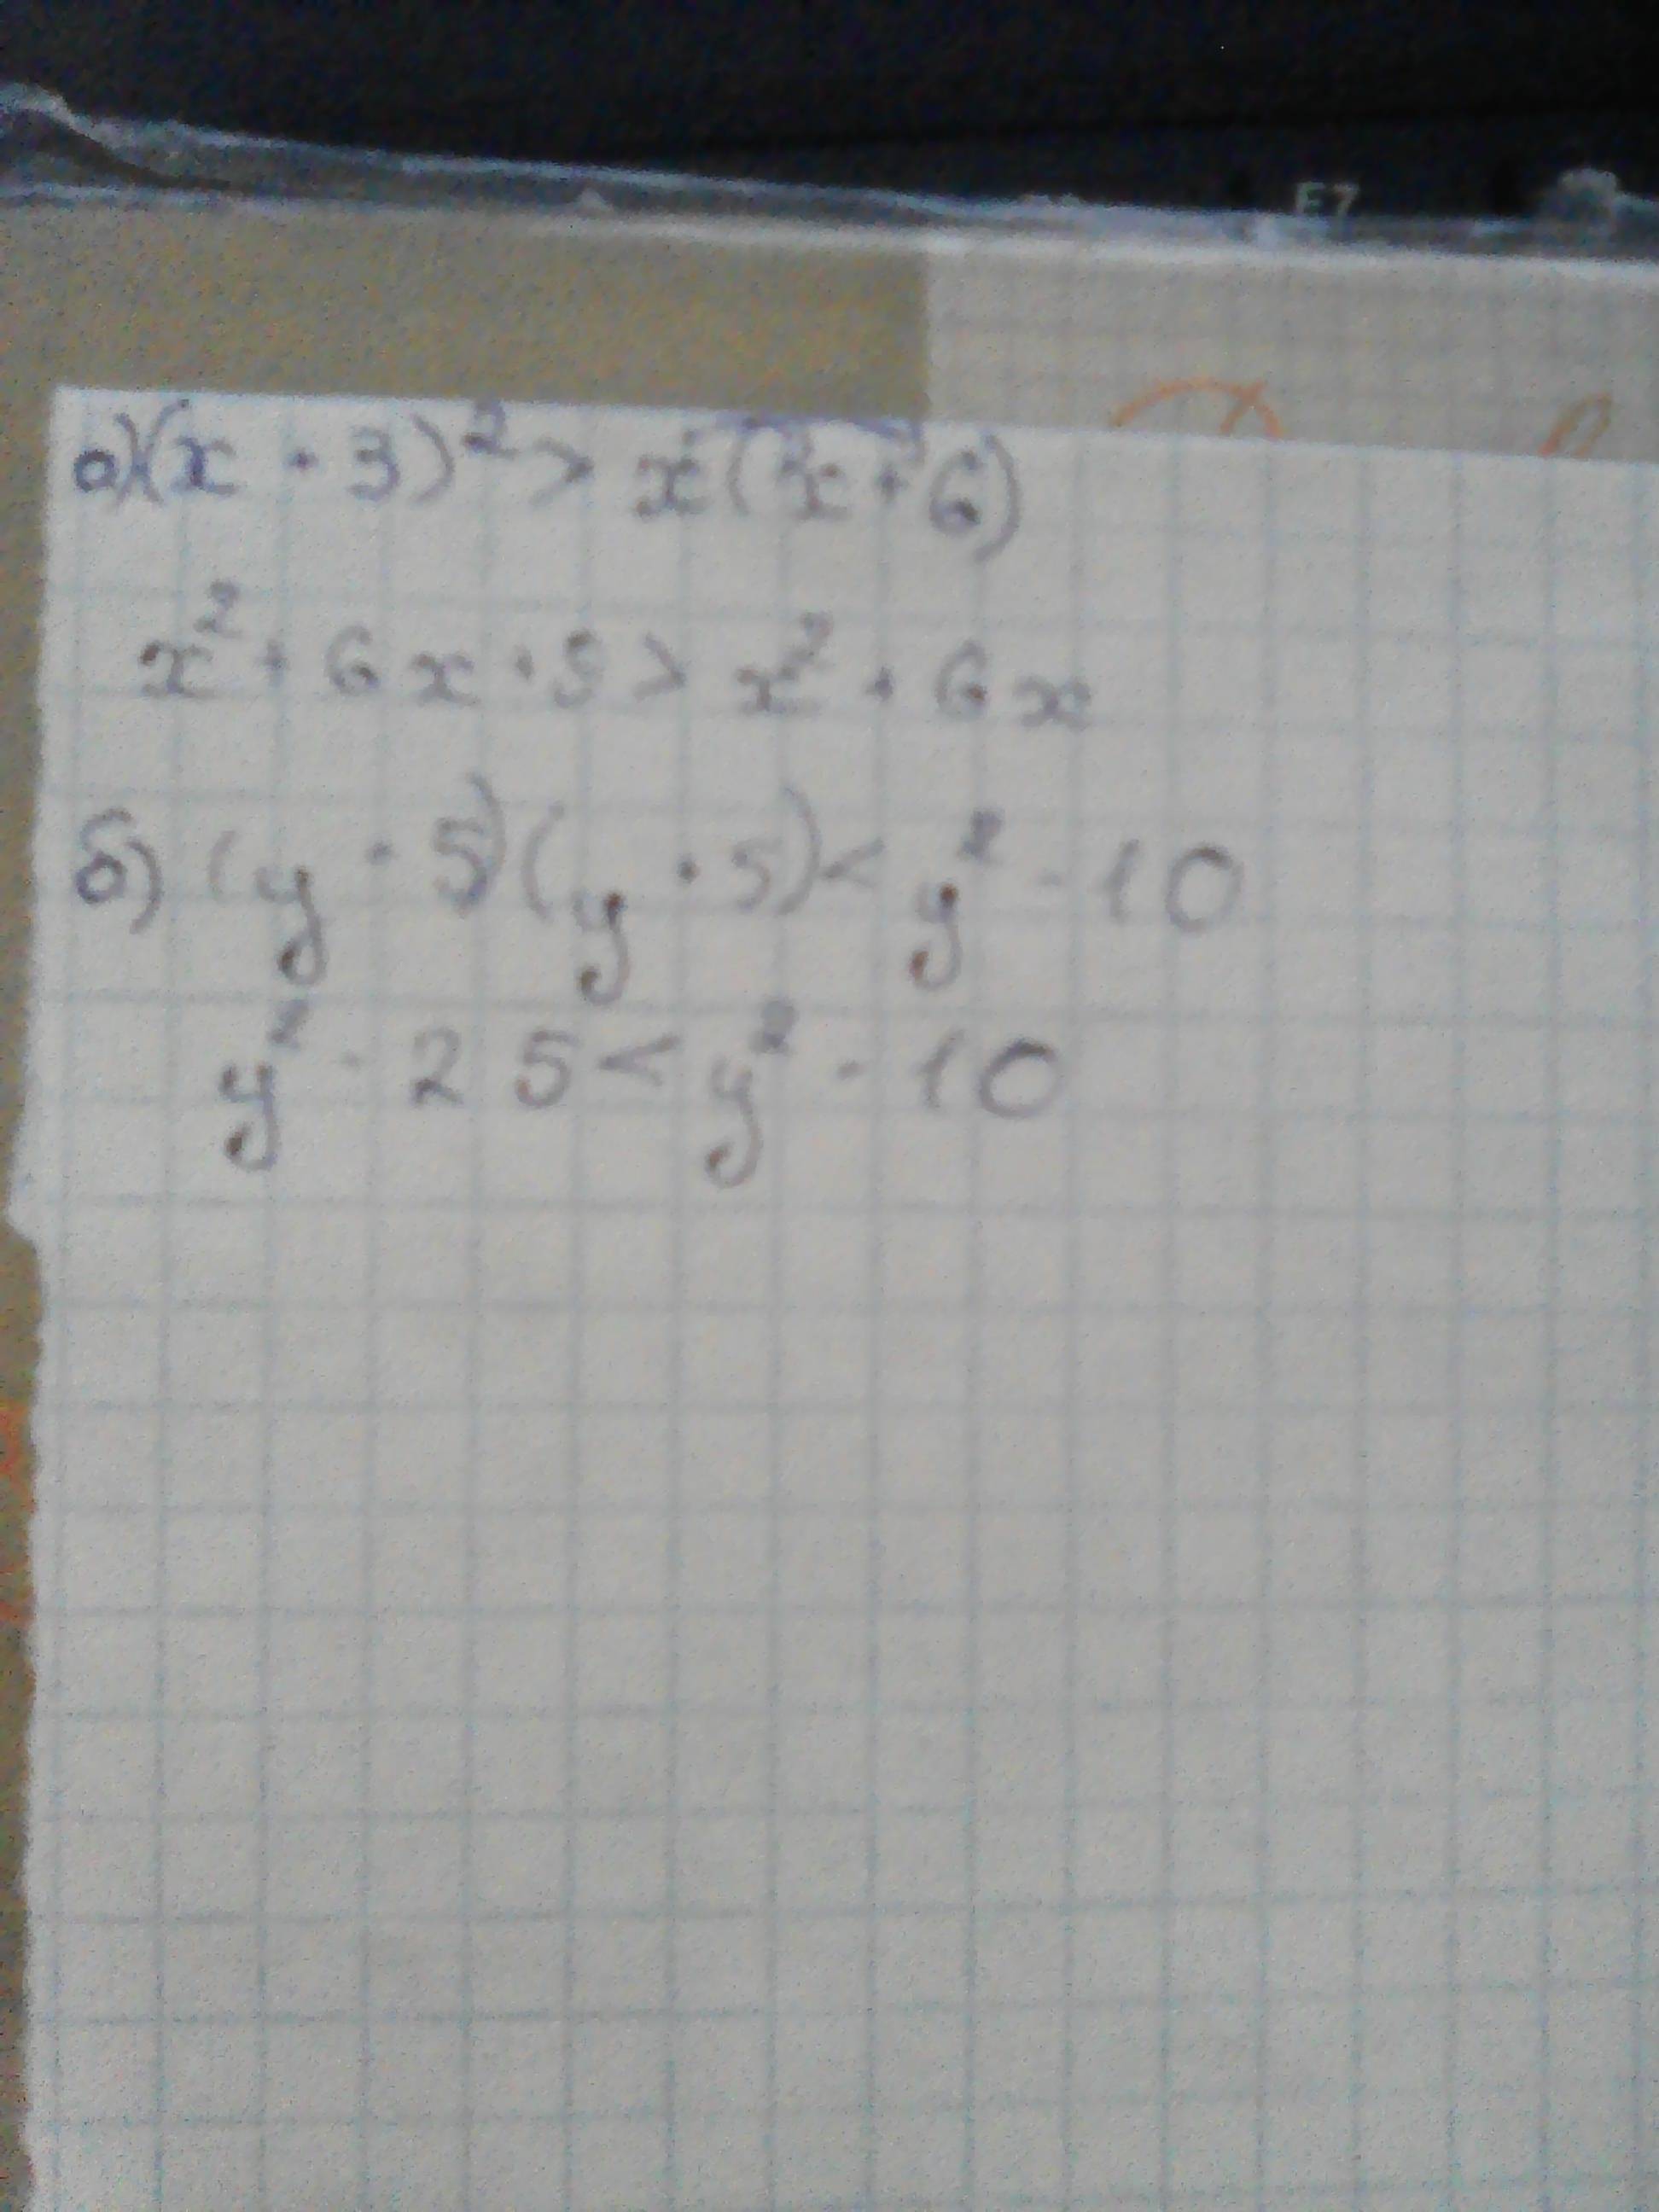 F7
а) (x + 3)² > x(x + 6)
x² + 6x + 9 > x² + 6x
б) (y - 5)(y + 5) < y² - 10
y² - 25 < y² - 10